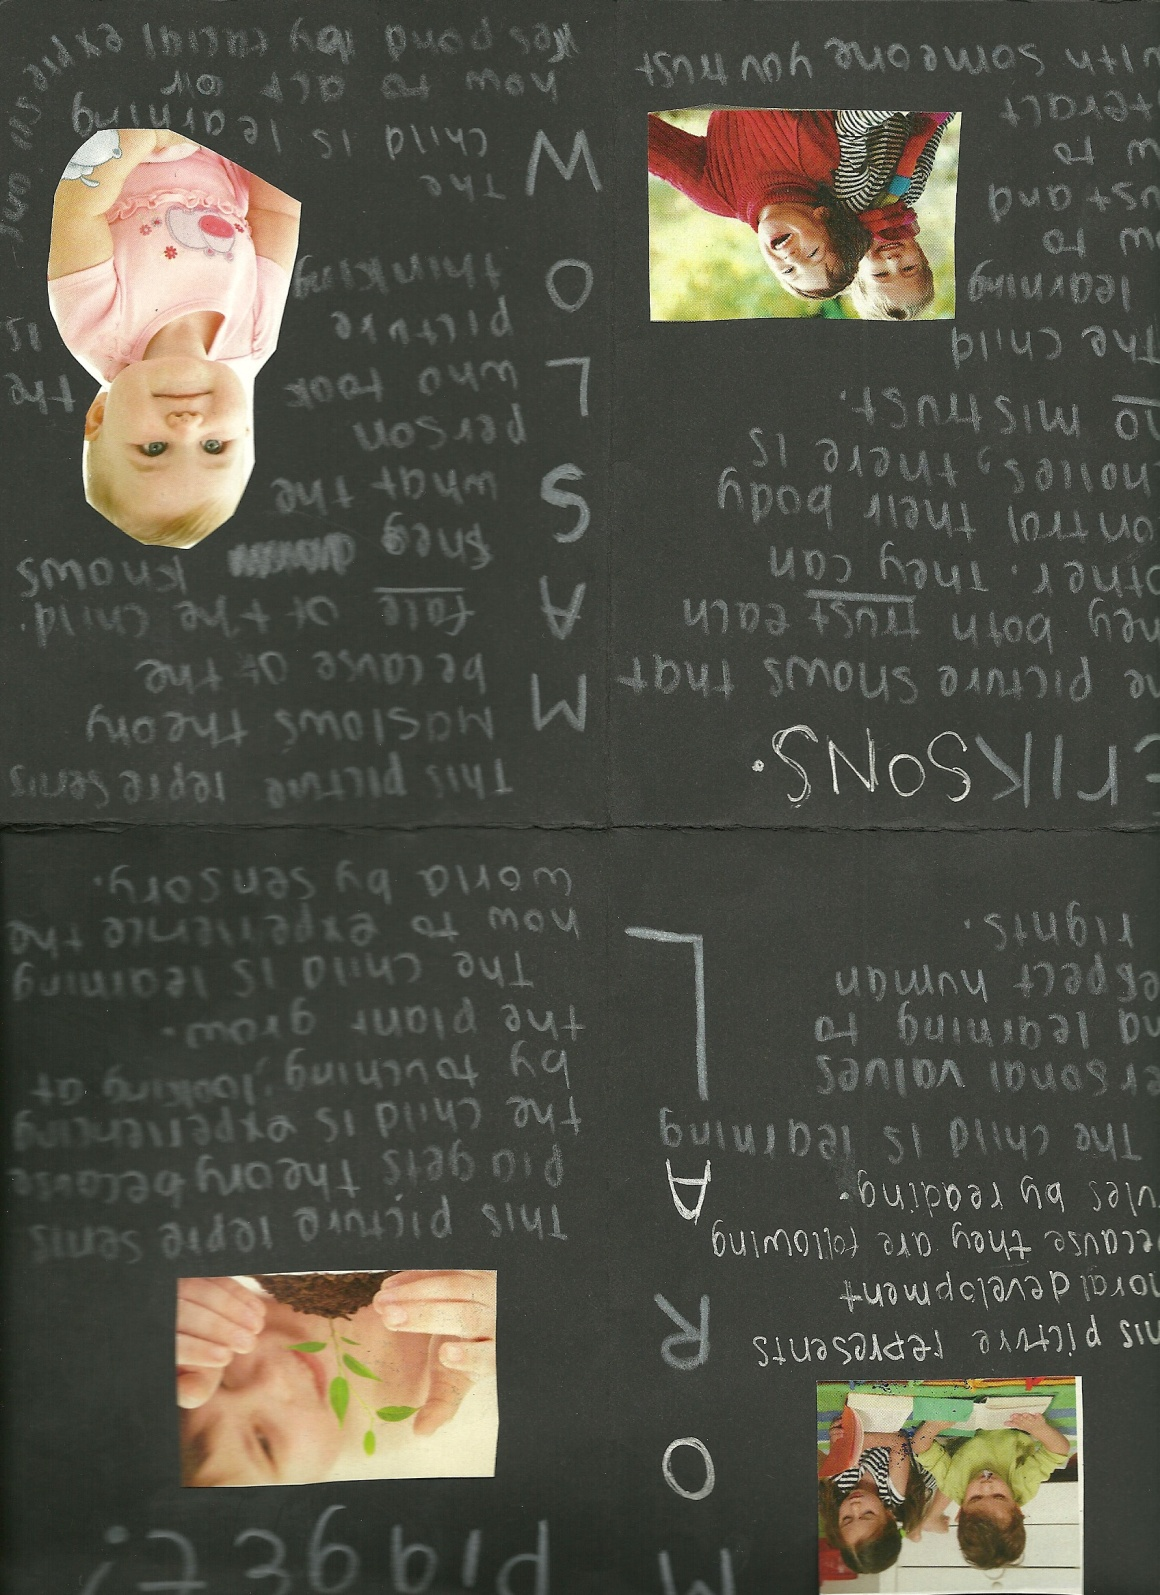 MORAL
his picture represents
moral development
because they are following
rules by reading.
The child is learning
ersonal values
nd learning to
espect human
rights.
Piaget:
This picture represents
piagets theory because
the child is experiencing
by touching, looking at
the plant grow.
The child is learning
how to experience the
world by sensory.
EriKSONS.
he picture shows that
hey both trust each
other. They can
ontrol their body
hoices, there is
no mistrust.
The child
learning
ow to
ust and
ow to
teract
with someone you trust
MASLOW
This picture represents
Maslows theory
because of the
face of the child.
they knows
what the
person
who took the
picture is
thinking
The
child is learning
how to act or
Respond by facial expre